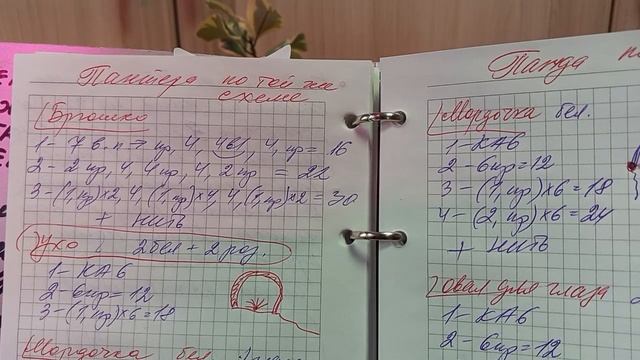 Пантера по той же
схеме
Брюшко
1- 7 в.п → пр, 4, 4в1, 4, пр = 16
2- 2пр, 4, 4пр, 4, 2пр = 22
3-(1,пр)×2, 4, (1,пр)×4, 4, (1,пр)×2 = 30
+ нить
Ухо 2бел + 2роз.
1- КА6
2- 6пр = 12
3-(1,пр)×6=18
Мордочка бел.
Панда
Мордочка бел.
1- КА6
2- 6пр = 12
3- (1,пр)×6 = 18
4- (2,пр)×6 = 24
+ нить
Овал для глаза
1- КА6
2- 6пр = 12